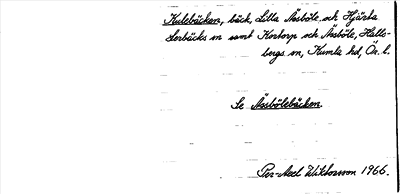 Kulebäcken, bäck, Lilla Åssböle och Hjärta
Lerbäcks sn samt Kortorp och Åssböle, Halls-
bergs sn, Kumla hd, Ör. l.
Se Åssbölebäcken.
Per-Axel Wiktorsson 1966.